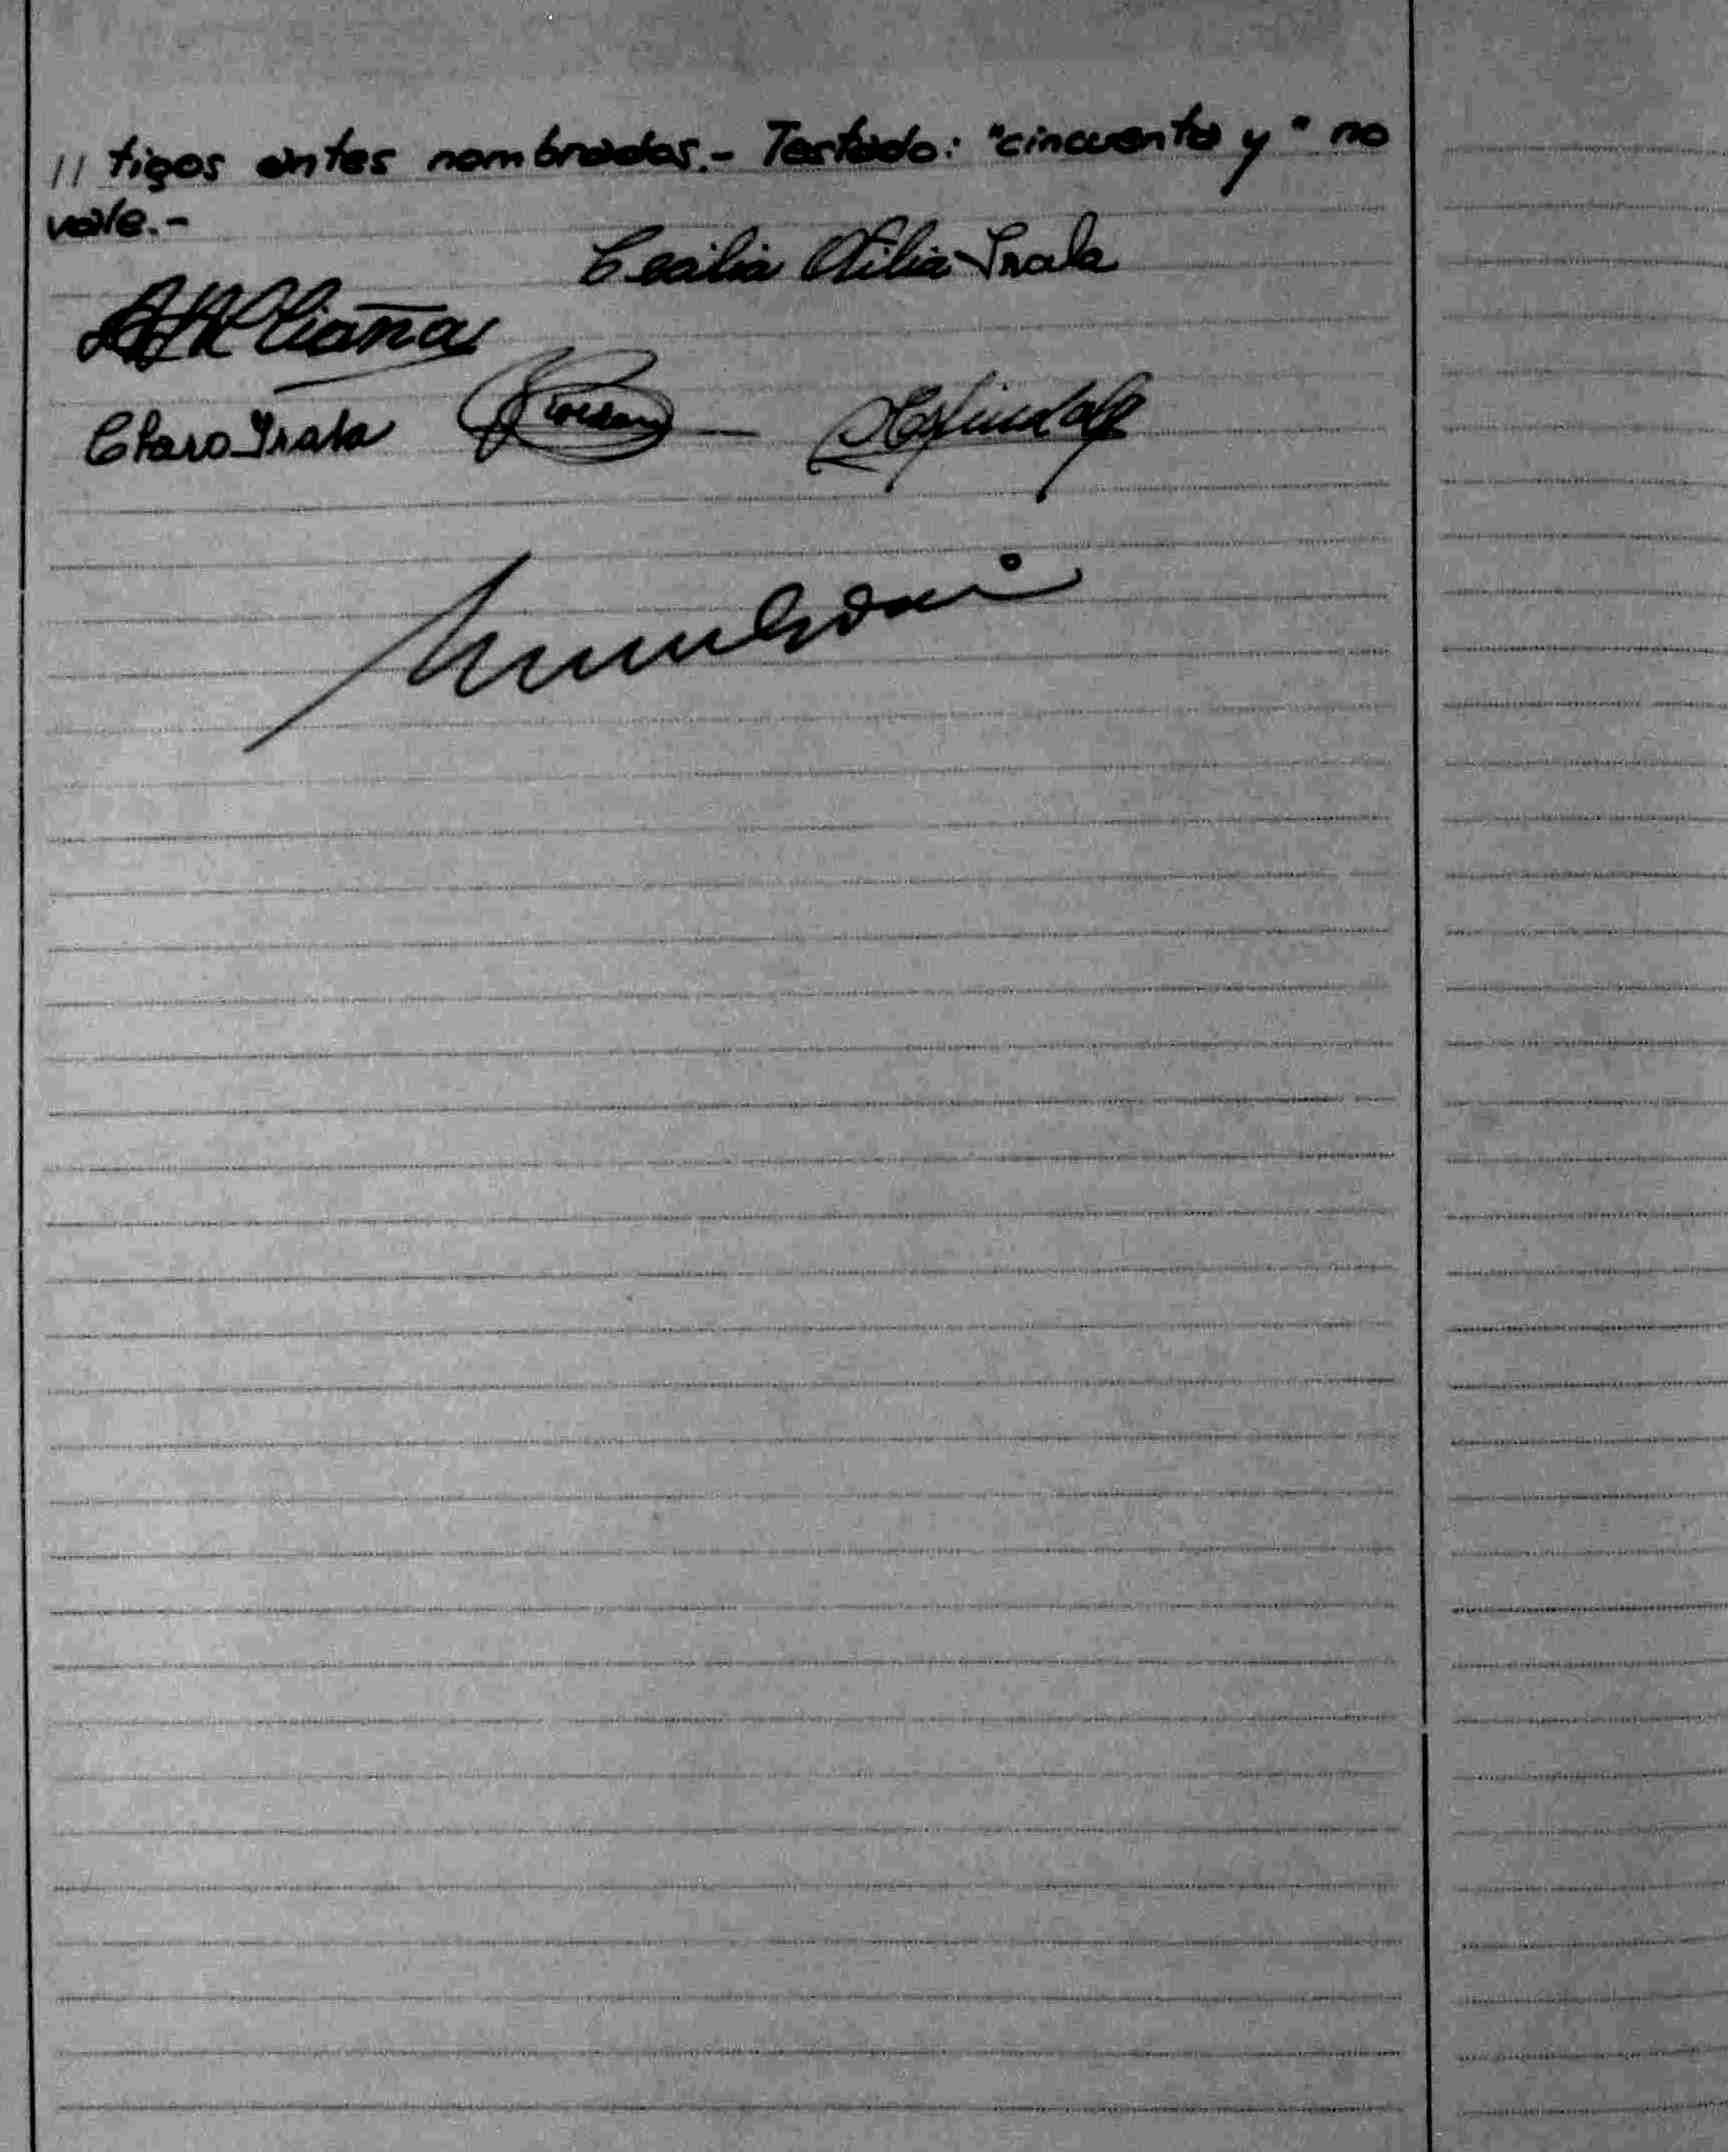 // tigos antes nombrados.- Testado: "cincuenta y" no
vale.-
Cecilia Otilia Irala
Claro Irala